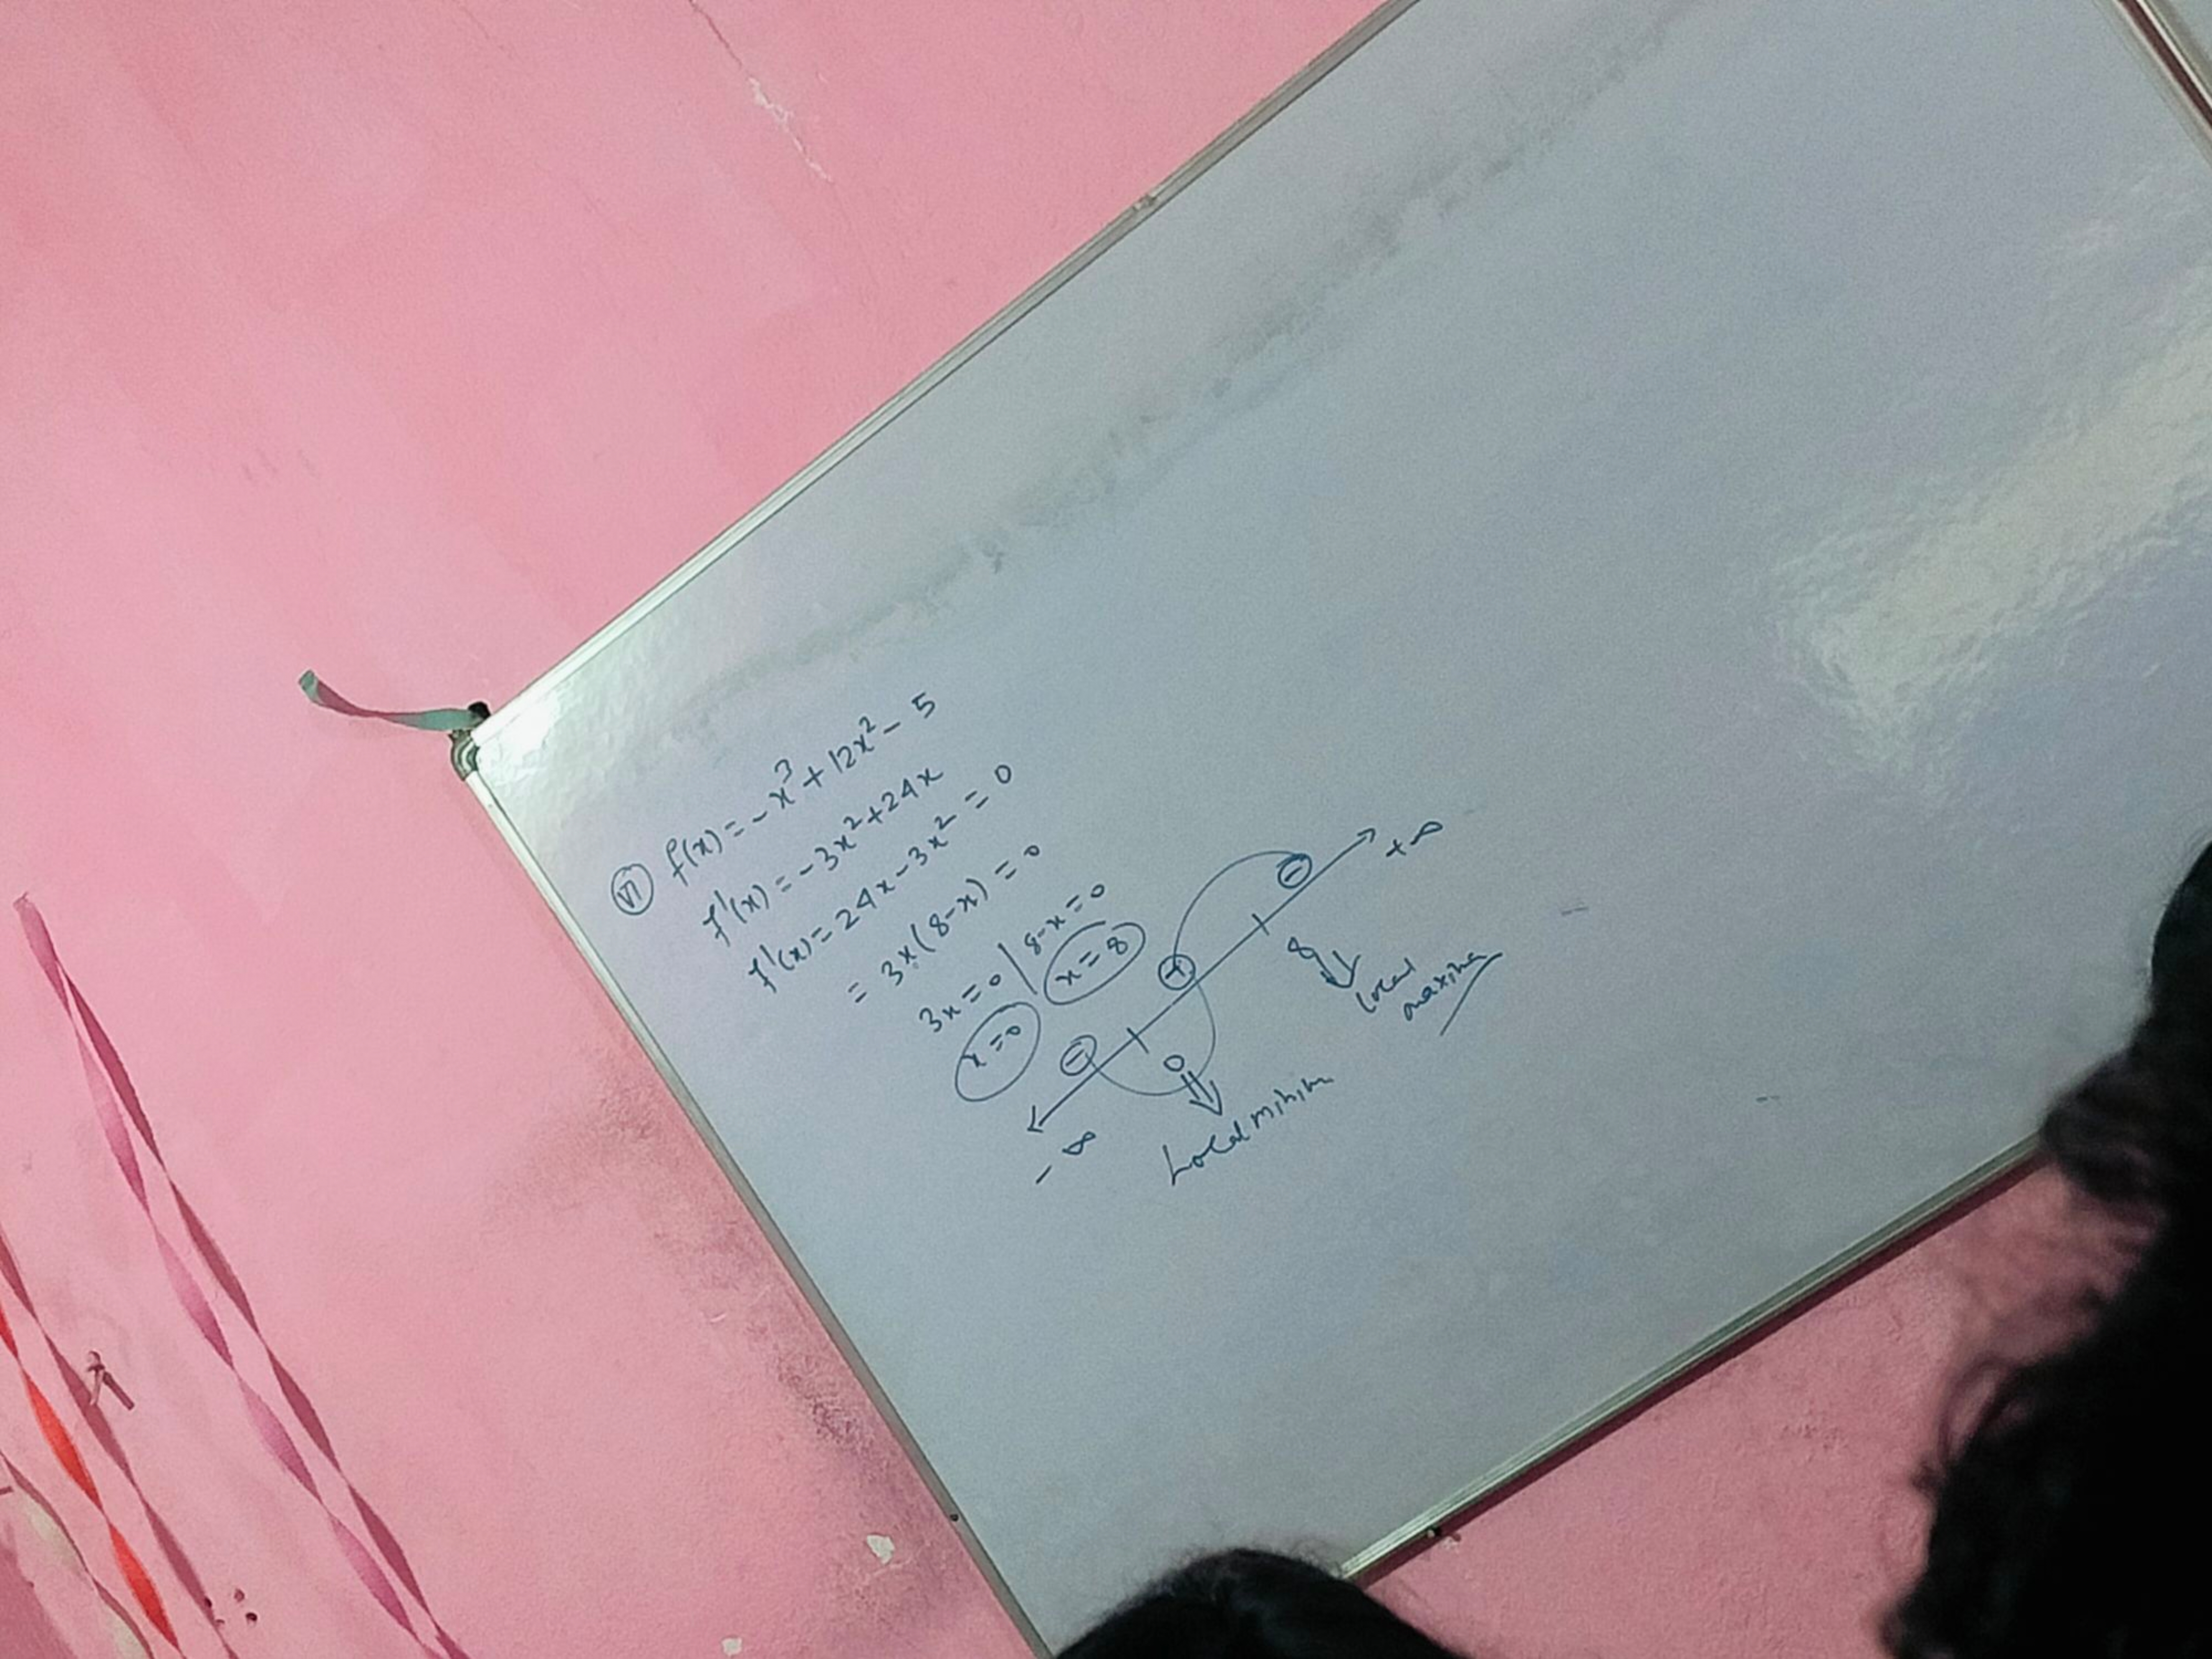 (VI) f(x) = -x³ + 12x² - 5
f'(x) = -3x² + 24x
f'(x) = 24x - 3x² = 0
= 3x(8-x) = 0
3x = 0 | 8-x = 0
x = 0 x = 8
- + -
-∞ 0 8 +∞
Local minima
local
maxima